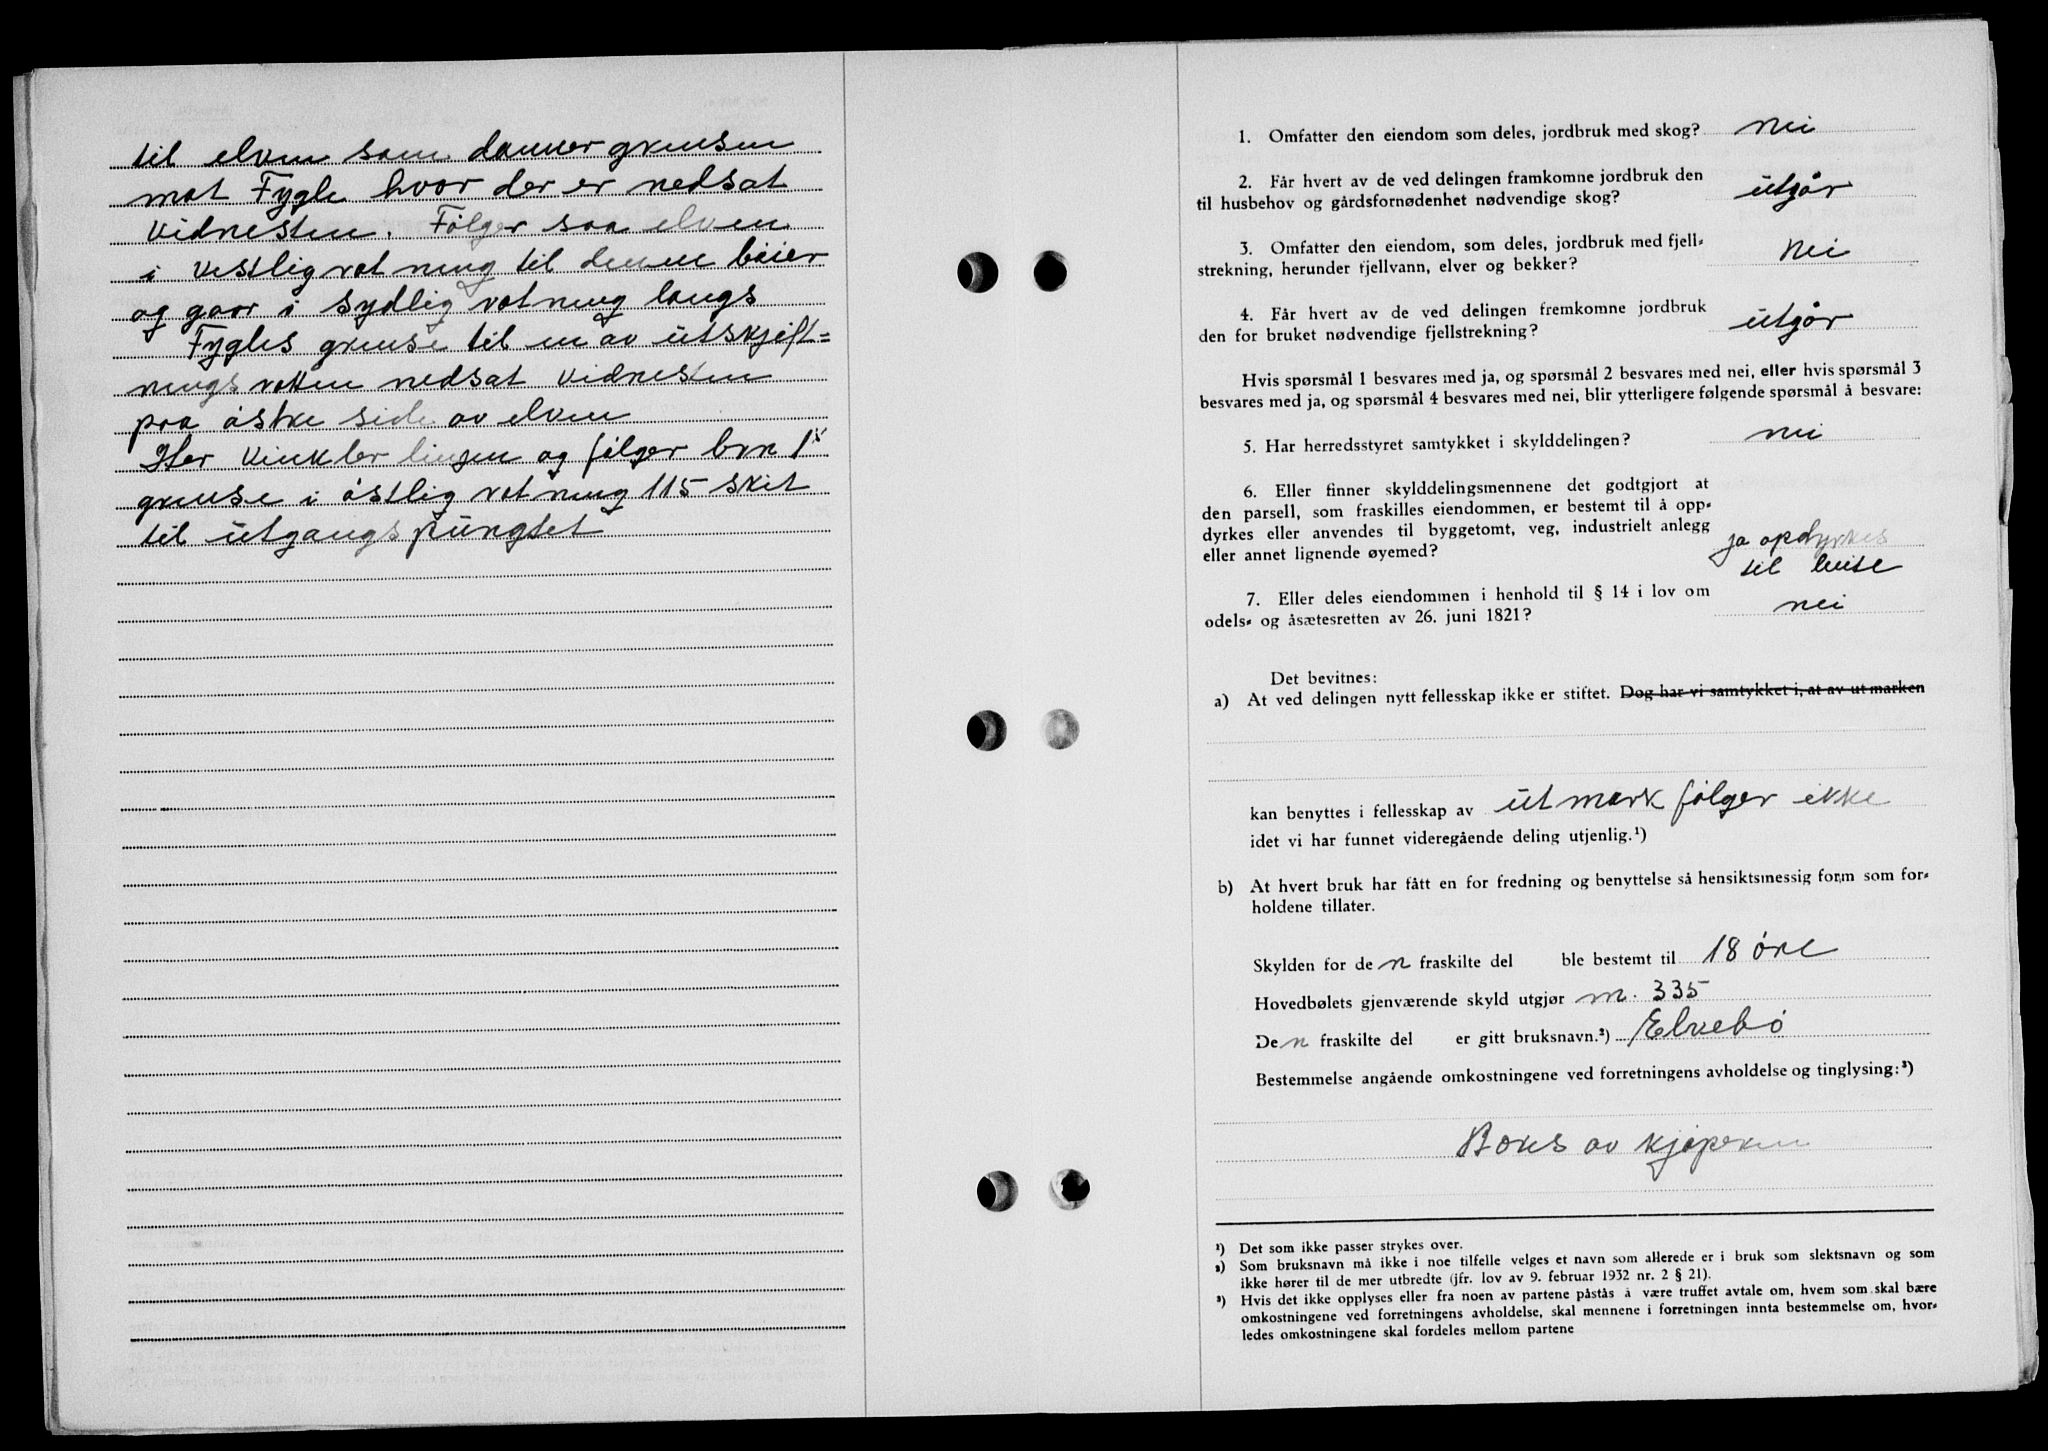 til elven som danner grensen
mot Fygle hvor der er nedsat
vidnesten. Følger saa elven
i vestlig retning til denne bøier
og gaar i sydlig retning langs
Fygles grense til en av utskjift=
nings retten nedsat vidnesten
paa østre side av elven
Her vinkler linjen og følger brn 1s
grense i østlig retning 115 skit
til utgangspungtet
1. Omfatter den eiendom som deles, jordbruk med skog? nei
2. Får hvert av de ved delingen framkomne jordbruk den
til husbehov og gårdsfornødenhet nødvendige skog? utgår
3. Omfatter den eiendom, som deles, jordbruk med fjell-
strekning, herunder fjellvann, elver og bekker? nei
4. Får hvert av de ved delingen fremkomne jordbruk
den for bruket nødvendige fjellstrekning? utgår
Hvis spørsmål 1 besvares med ja, og spørsmål 2 besvares med nei, eller hvis spørsmål 3
besvares med ja, og spørsmål 4 besvares med nei, blir ytterligere følgende spørsmål å besvare:
5. Har herredsstyret samtykket i skylddelingen? nei
6. Eller finner skylddelingsmennene det godtgjort at
den parsell, som fraskilles eiendommen, er bestemt til å opp-
dyrkes eller anvendes til byggetomt, veg, industrielt anlegg
eller annet lignende øyemed? ja opdyrkes
til beite
7. Eller deles eiendommen i henhold til § 14 i lov om
odels- og åsætesretten av 26. juni 1821? nei
Det bevitnes:
a) At ved delingen nytt fellesskap ikke er stiftet. Dog har vi samtykket i, at av utmarken
kan benyttes i fellesskap av utmark følger ikke
idet vi har funnet videregående deling utjenlig.¹)
b) At hvert bruk har fått en for fredning og benyttelse så hensiktsmessig form som for-
holdene tillater.
Skylden for den fraskilte del ble bestemt til 18 øre
Hovedbølets gjenværende skyld utgjør m. 335
Den fraskilte del er gitt bruksnavn.²) Elvebø
Bestemmelse angående omkostningene ved forretningens avholdelse og tinglysing:³)
Bæres av kjøperen
¹) Det som ikke passer strykes over.
²) Som bruksnavn må ikke i noe tilfelle velges et navn som allerede er i bruk som slektsnavn og som
ikke hører til de mer utbredte (jfr. lov av 9. februar 1932 nr. 2 § 21).
³) Hvis det ikke opplyses eller fra noen av partene påstås å være truffet avtale om, hvem som skal bære
omkostningene ved forretningens avholdelse, skal mennene i forretningen innta bestemmelse om, hvor-
ledes omkostningene skal fordeles mellom partene